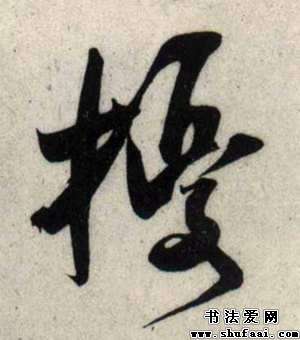 擾
书法爱网
www.shufaai.com